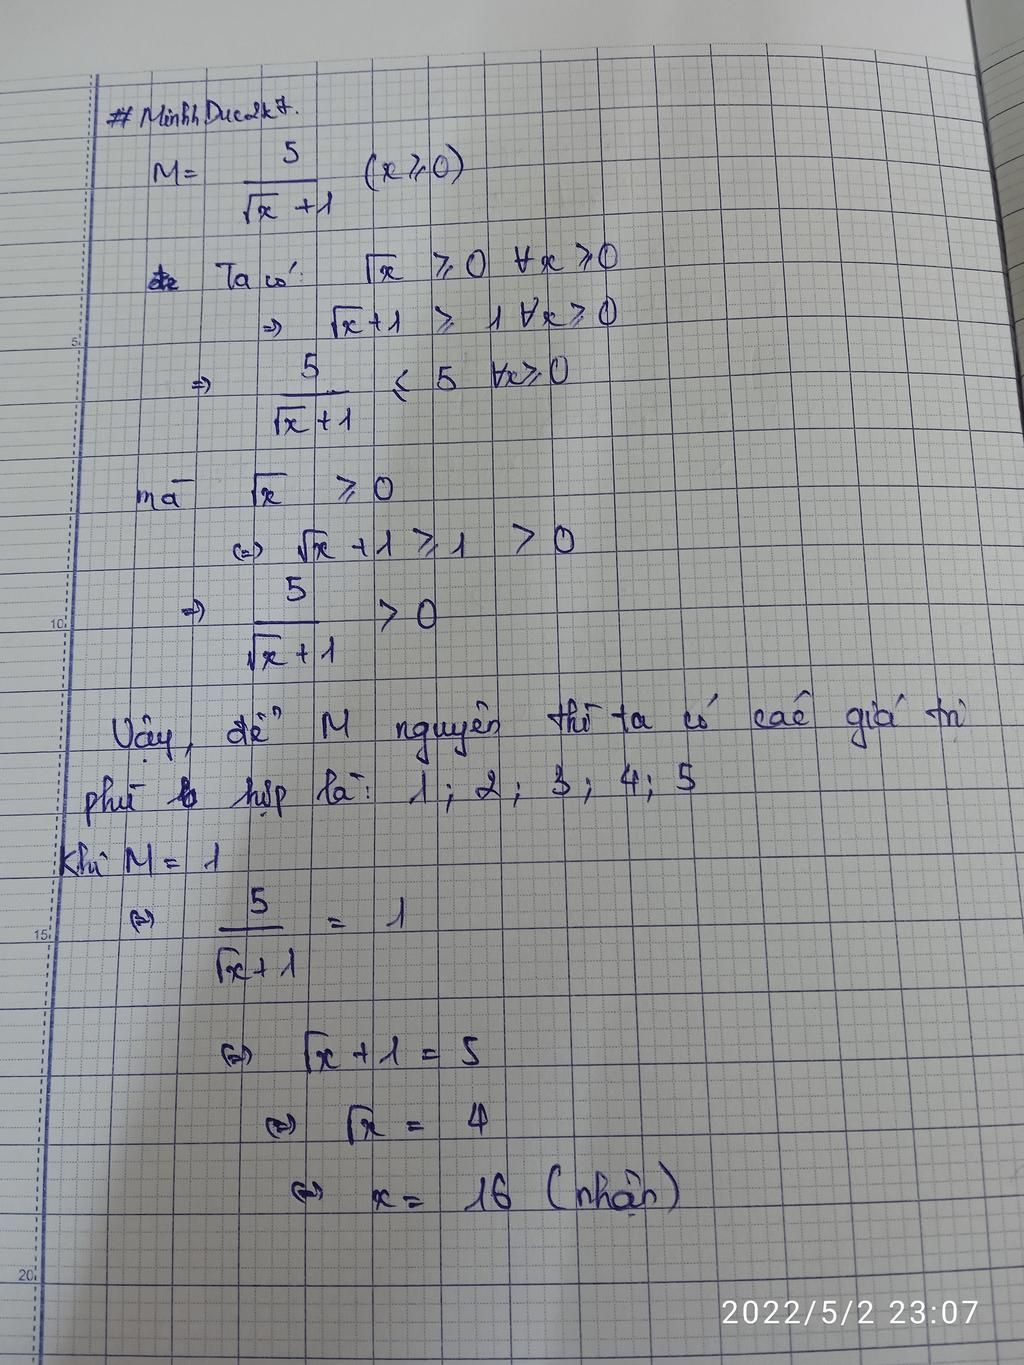 # MinhhDuc2k7.
M = 5/(√x + 1) (x ≥ 0)
Ta có: √x ≥ 0 ∀x ≥ 0
⇒ √x + 1 ≥ 1 ∀x ≥ 0
5
⇒ 5/(√x + 1) ≤ 5 ∀x ≥ 0
mà √x ≥ 0
⇔ √x + 1 ≥ 1 > 0
⇒ 5/(√x + 1) > 0
10
Vậy, để M nguyên thì ta có các giá trị
phù hợp là: 1; 2; 3; 4; 5
Khi M = 1
⇔ 5/(√x + 1) = 1
15
⇔ √x + 1 = 5
⇔ √x = 4
⇔ x = 16 (nhận)
20
2022/5/2 23:07